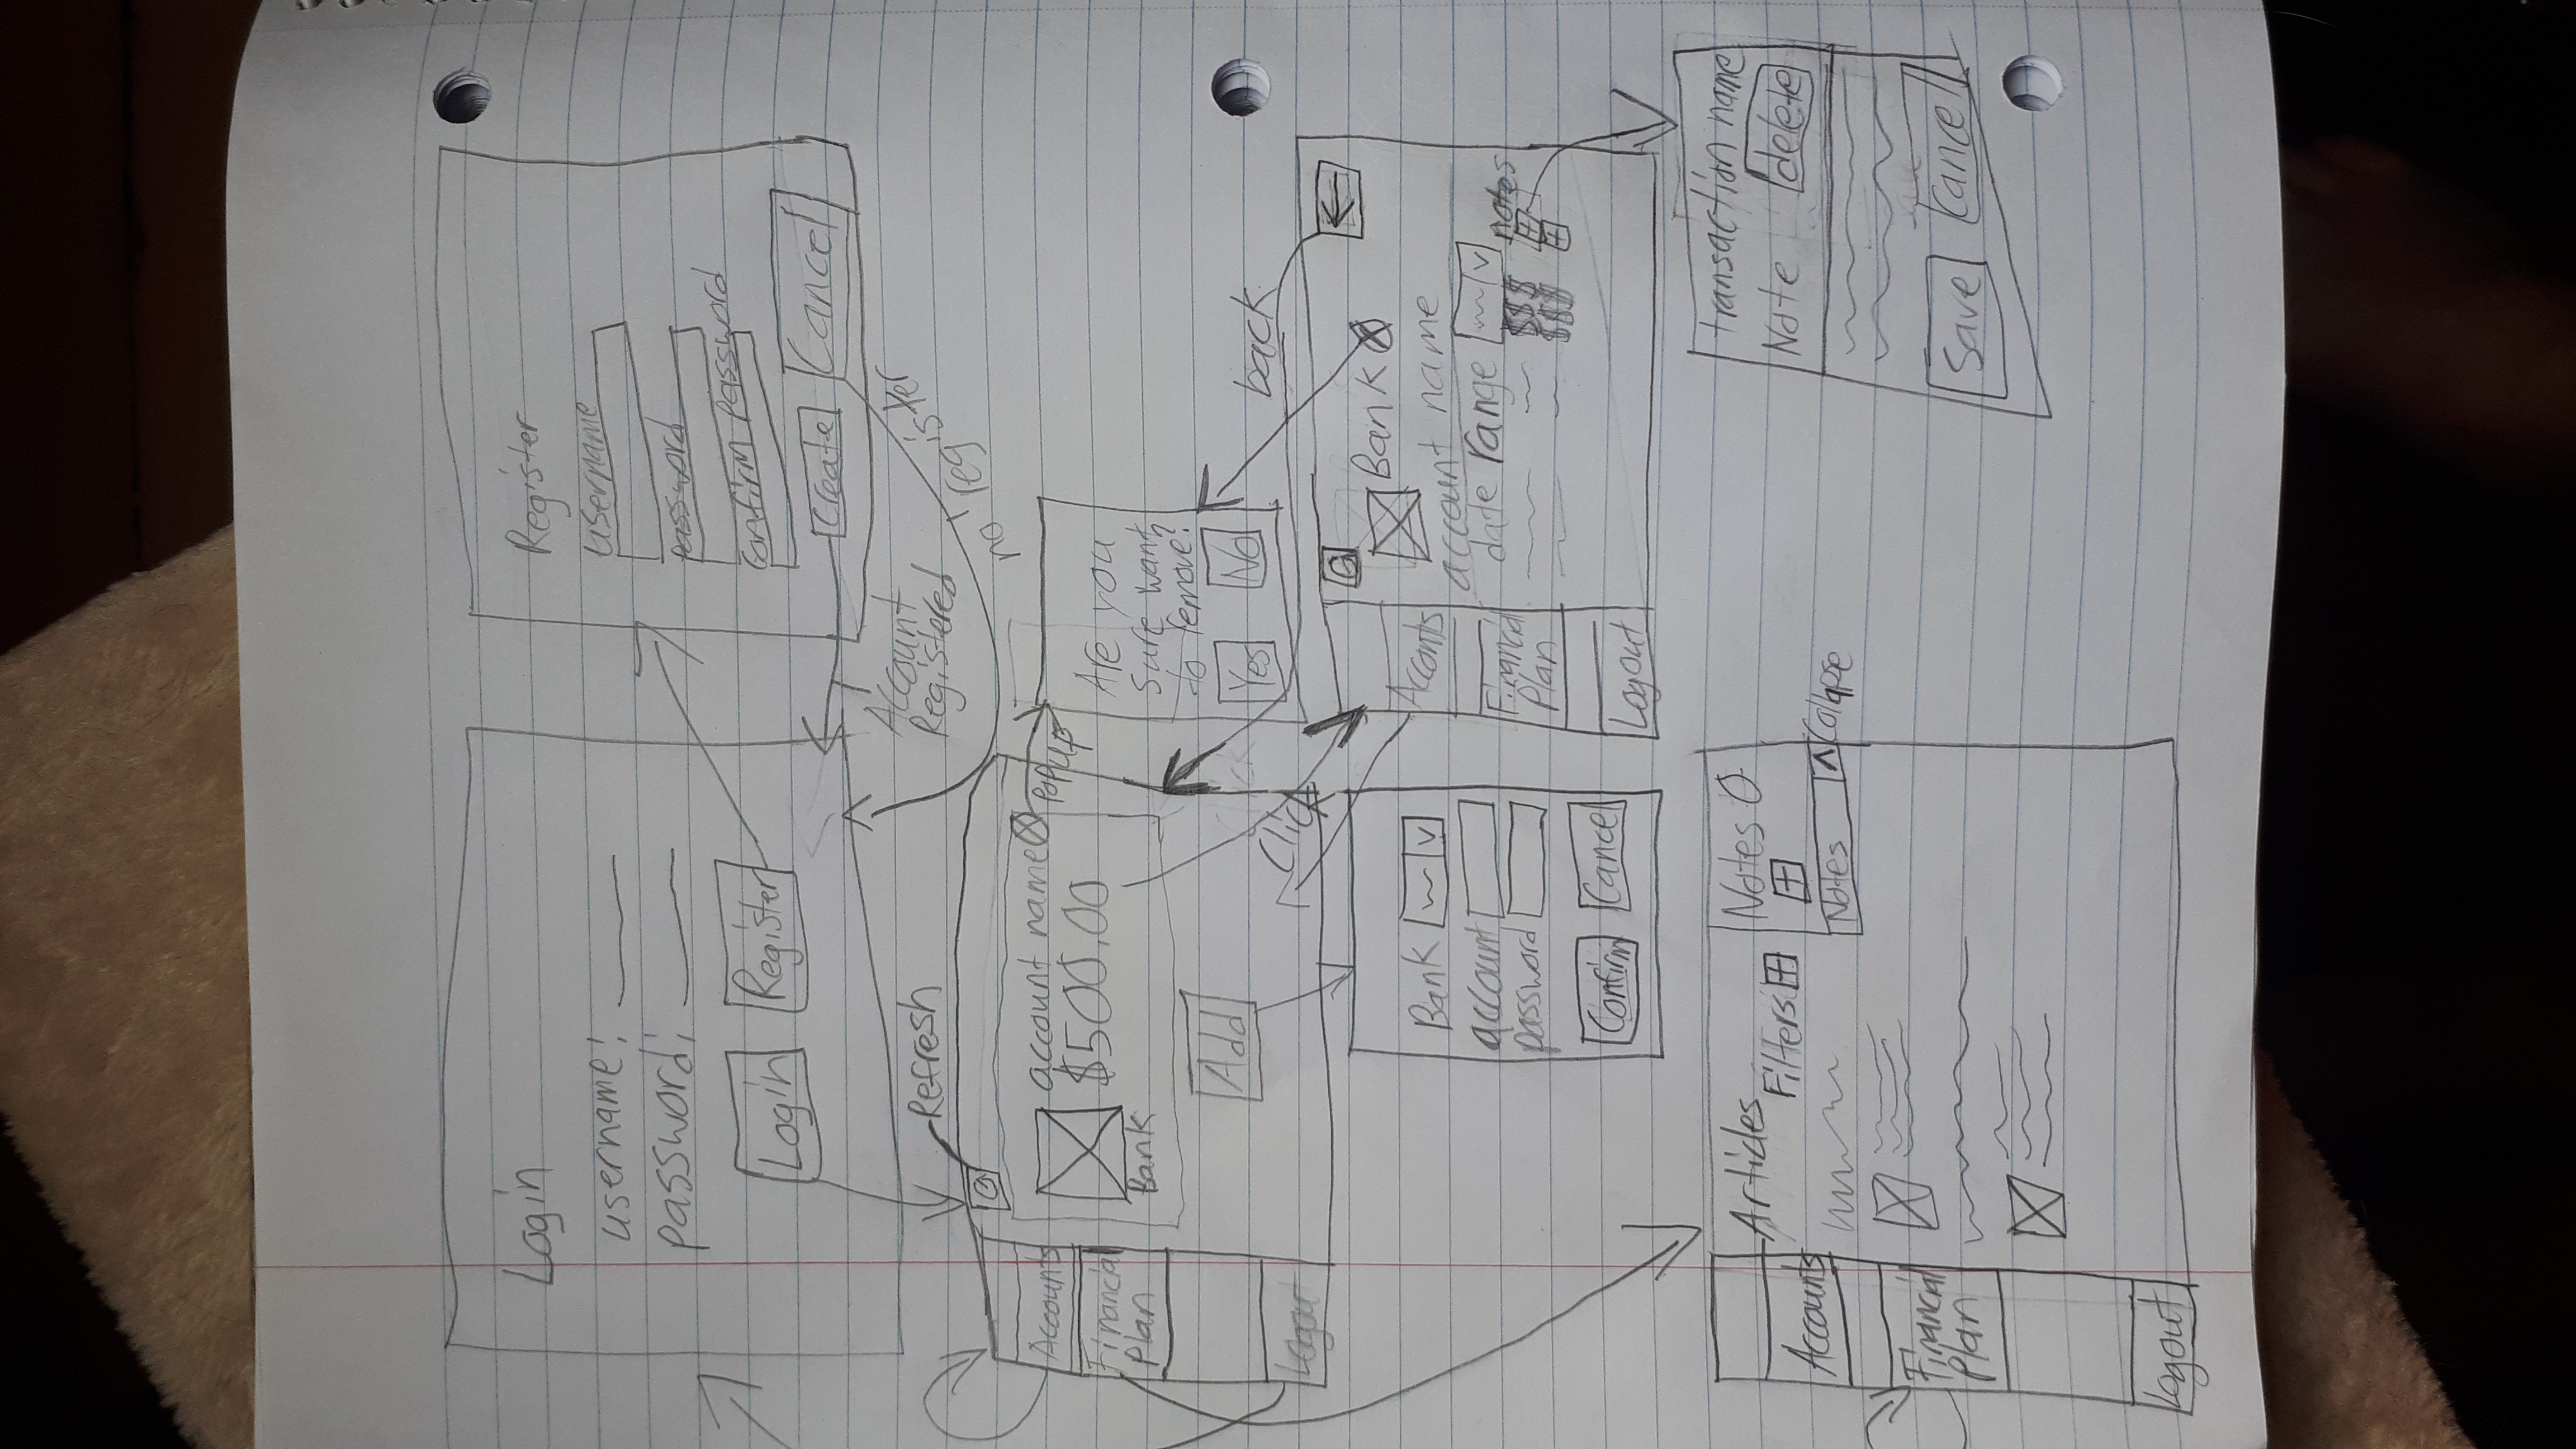 Login
username:
password:
Login
Register
Register
username
password
Confirm password
Create
Cancel
Account
Registered
no register
Refresh
Accounts
Financial
Plan
Logout
account name
$500.00
Bank
Add
Popup
Are you
sure want
to remove?
Yes
No
Click
back
Bank
account
password
Confirm
Cancel
Acconts
Financial
Plan
Logout
Bank
account name
date range
notes
$$$
$$$
Accounts
Financial
Plan
Logout
Articles
Filters
Notes
Notes
Collapse
transaction name
Note
delete
Save
Cancel